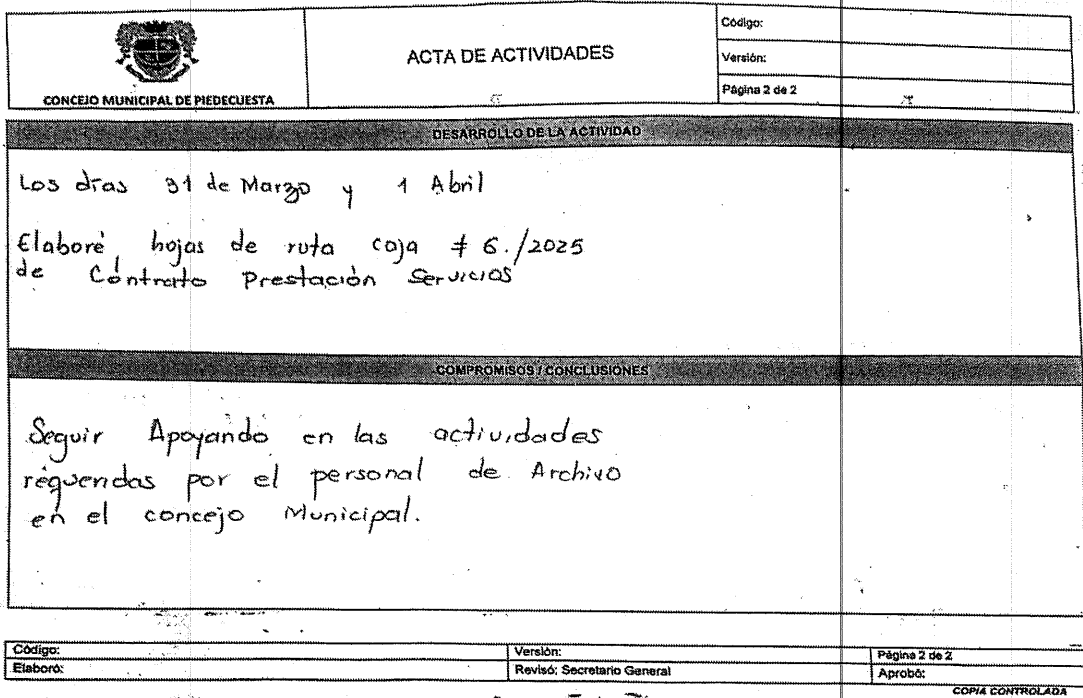 CONCEJO MUNICIPAL DE PIEDECUESTA
ACTA DE ACTIVIDADES
Código:
Versión:
Página 2 de 2
DESARROLLO DE LA ACTIVIDAD
Los días 31 de Marzo y 1 Abril
Elaboré hojas de ruta caja # 6./2025
de Contrato Prestación Servicios
COMPROMISOS / CONCLUSIONES
Seguir Apoyando en las actividades
requeridas por el personal de Archivo
en el concejo Municipal.
Código: Versión: Página 2 de 2
Elaboró: Revisó: Secretario General Aprobó:
COPIA CONTROLADA